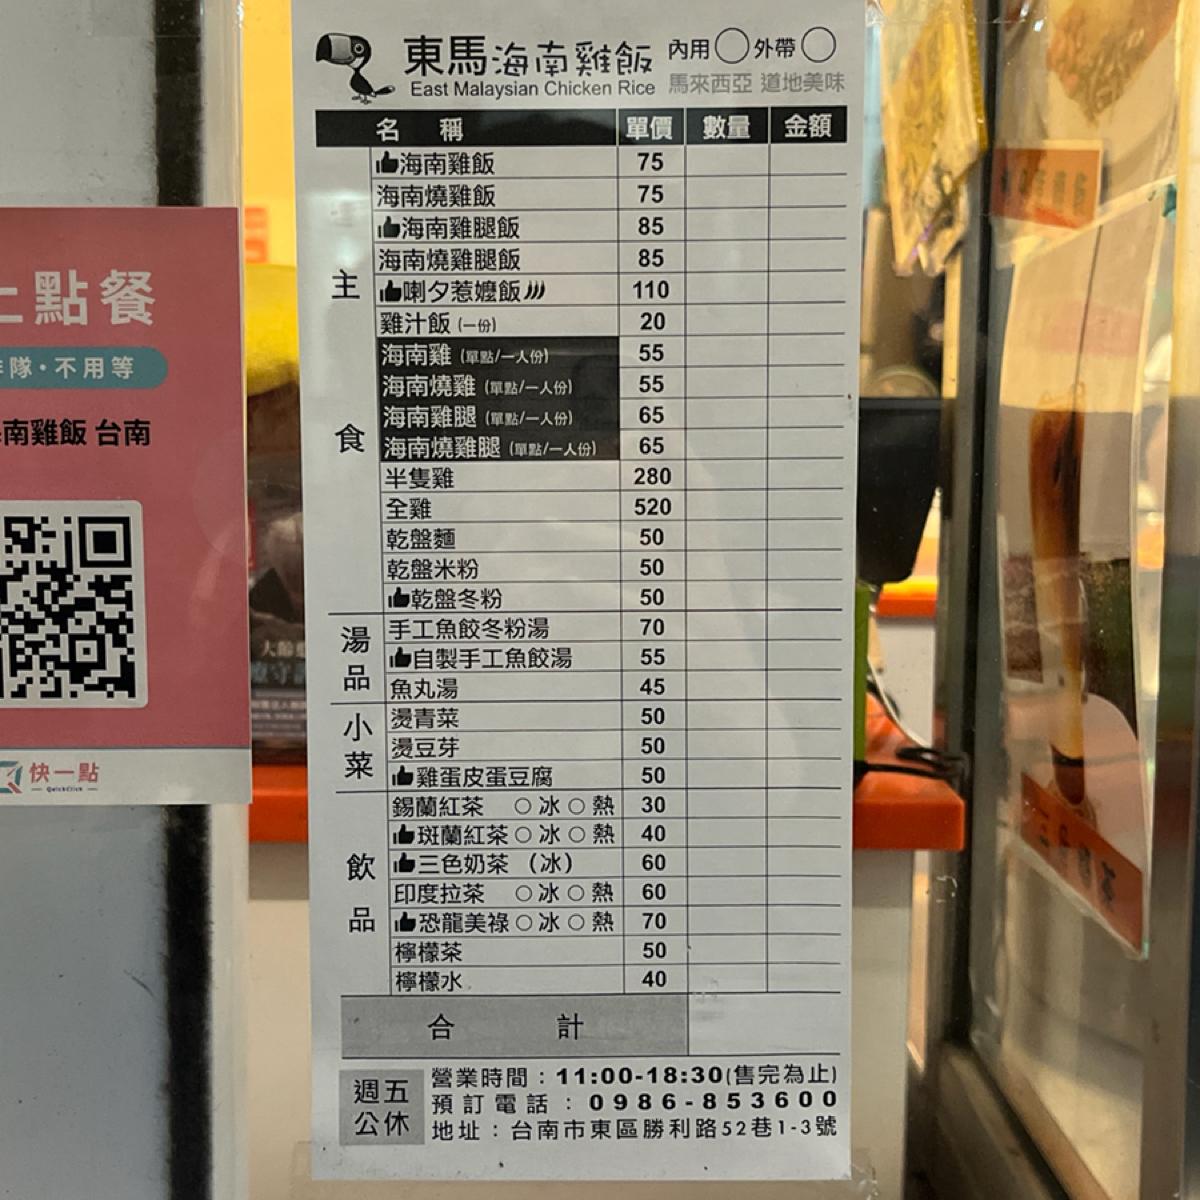 東馬海南雞飯 內用○外帶○
East Malaysian Chicken Rice 馬來西亞 道地美味
名 稱 單價 數量 金額
主食
海南雞飯 75
海南燒雞飯 75
海南雞腿飯 85
海南燒雞腿飯 85
喇夕惹嬤飯 110
雞汁飯 (一份) 20
海南雞 (單點/一人份) 55
海南燒雞 (單點/一人份) 55
海南雞腿 (單點/一人份) 65
海南燒雞腿 (單點/一人份) 65
半隻雞 280
全雞 520
乾盤麵 50
乾盤米粉 50
乾盤冬粉 50
湯品
手工魚餃冬粉湯 70
自製手工魚餃湯 55
魚丸湯 45
小菜
燙青菜 50
燙豆芽 50
雞蛋皮蛋豆腐 50
飲品
錫蘭紅茶 ○冰○熱 30
斑蘭紅茶○冰○熱 40
三色奶茶 (冰) 60
印度拉茶 ○冰○熱 60
恐龍美祿○冰○熱 70
檸檬茶 50
檸檬水 40
合 計
週五
公休
營業時間:11:00-18:30(售完為止)
預訂電話:0986-853600
地址:台南市東區勝利路52巷1-3號
上點餐
隊・不用等
南雞飯 台南
快一點
QuickClick